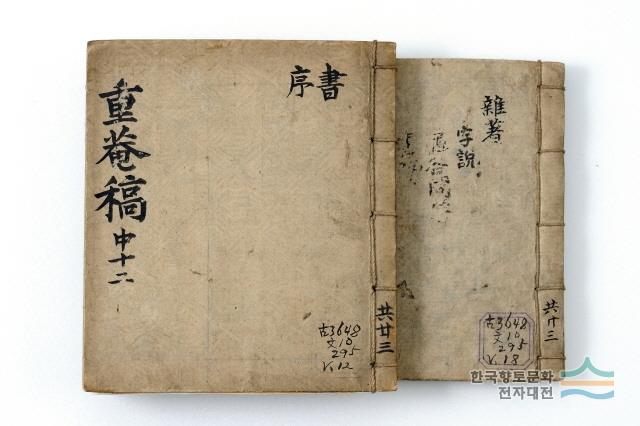 重菴稿
中十二
書
序
共廿三
古3648
文10
295
V.12
雜著
字說
共廿三
古3648
文10
295
V.18
한국향토문화
전자대전